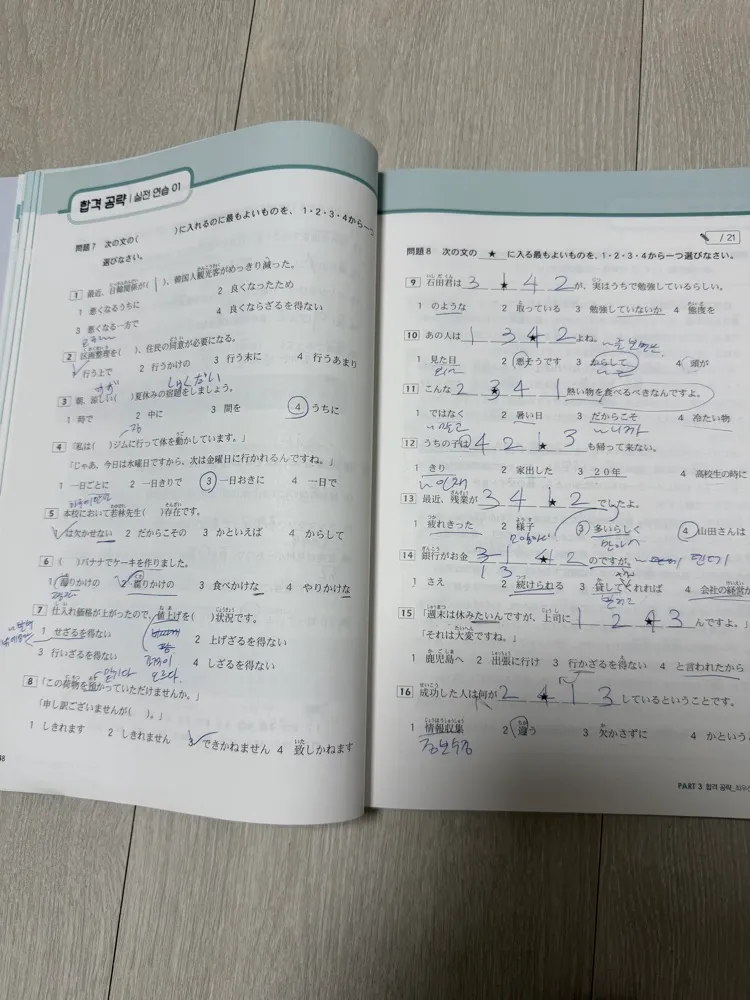 합격 공략 | 실전 연습 01
問題7 次の文の( )に入れるのに最もよいものを、1・2・3・4から一つ
選びなさい。
1 最近、日韓関係が( )、韓国人観光客がめっきり減った。
1 悪くなるうちに 2 良くなったため
3 悪くなる一方で 4 良くならざるを得ない
2 区画整理を( )、住民の同意が必要になる。
1 行う上で 2 行うかけの 3 行う末に 4 行うあまり
3 朝、涼しい( )夏休みの宿題をしましょう。
1 時で 2 中に 3 間を 4 うちに
4 「私は( )ジムに行って体を動かしています。」
「じゃあ、今日は水曜日ですから、次は金曜日に行かれるんですね。」
1 一日ごとに 2 一日きりで 3 一日おきに 4 一日で
5 本校において若林先生( )存在です。
1 は欠かせない 2 だからこその 3 かといえば 4 からして
6 ( )バナナでケーキを作りました。
1 腐りかけの 2 腐りかけの 3 食べかけな 4 やりかけな
7 仕入れ価格が上がったので、値上げを( )状況です。
1 せざるを得ない 2 上げざるを得ない
3 行いざるを得ない 4 しざるを得ない
8 「この荷物を預かっていただけませんか。」
「申し訳ございませんが( )。」
1 しきれます 2 しきれません 3 できかねません 4 致しかねます
48
/ 21
問題8 次の文の ★ に入る最もよいものを、1・2・3・4から一つ選びなさい。
9 石田君は 3 1 ★ 4 2 が、実はうちで勉強しているらしい。
1 のような 2 取っている 3 勉強していないか 4 態度を
10 あの人は 1 3 4 ★ 2 よね。
1 見た目 2 悪そうです 3 ならして 4 頭が
11 こんな 2 3 ★ 4 1 熱い物を食べるべきなんですよ。
1 ではなく 2 暑い日 3 だからこそ 4 冷たい物
12 うちの子は 4 2 1 ★ 3 も帰って来ない。
1 きり 2 家出した 3 20年 4 高校生の時に
13 最近、残業が 3 4 1 ★ 2 でしたよ。
1 疲れきった 2 様子 3 多いらしく 4 山田さんは
14 銀行がお金 3 1 4 ★ 2 のですが。
1 3
1 さえ 2 続けられる 3 貸してくれれば 4 会社の経営が
15 「週末は休みたいんですが、上司に 1 2 4 ★ 3 んですよ。」
「それは大変ですね。」
1 鹿児島へ 2 出張に行け 3 行かざるを得ない 4 と言われたから
16 成功した人は何が 2 4 ★ 1 3 しているということです。
1 情報収集 2 違う 3 欠かさずに 4 かという
정보수집
PART 3 합격 공략